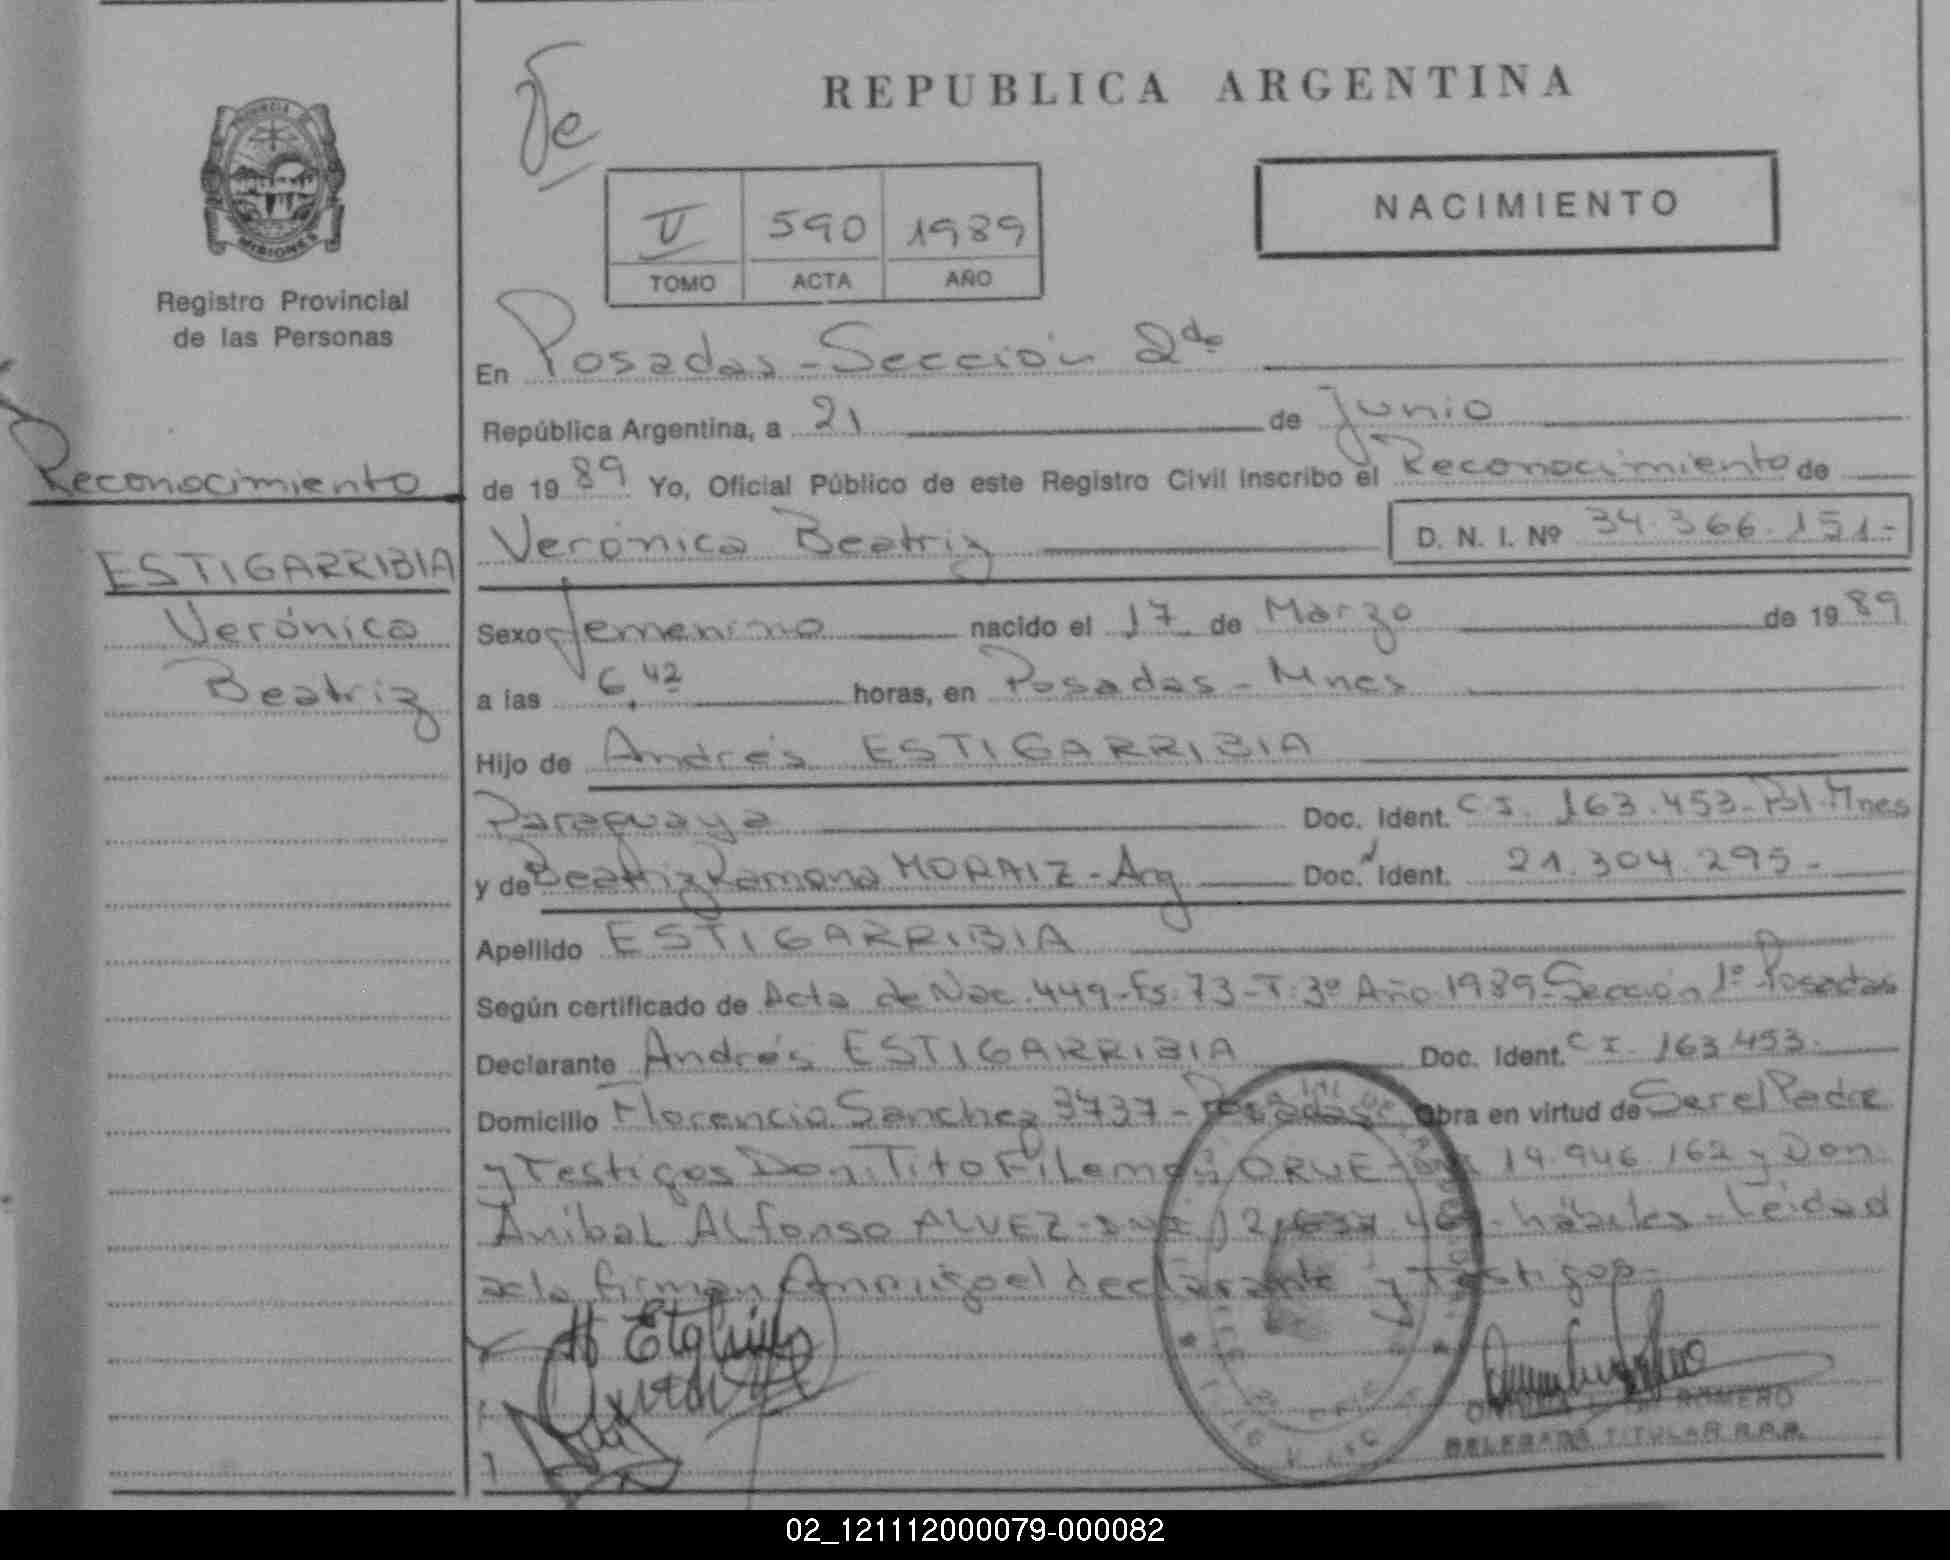 REPUBLICA ARGENTINA
PROVINCIA
MISIONES
Registro Provincial
de las Personas
II 590 1989
TOMO ACTA AÑO
NACIMIENTO
Reconocimiento
ESTIGARRIBIA
Verónica
Beatriz
En Posadas - Sección 2da
República Argentina, a 21 de Junio
de 1989 Yo, Oficial Público de este Registro Civil inscribo el Reconocimiento de
Verónica Beatriz D. N. I. Nº 34.366.151.-
Sexo femenino nacido el 17 de Marzo de 1989
a las 6,42 horas, en Posadas - Mnes
Hijo de Andrés ESTIGARRIBIA
Paraguaya Doc. Ident. C I. 163.453 - Pol. Mnes
y de Beatriz Ramona MORAIZ - Arg Doc. Ident. 21.304.295.-
Apellido ESTIGARRIBIA
Según certificado de Acta de Nac. 449 - Fs. 73 - T. 3º Año 1989 - Sección 1º Posadas
Declarante Andrés ESTIGARRIBIA Doc. Ident. C I. 163 453.
Domicilio Florencio Sanchez 3737 - Posadas Obra en virtud de Ser el Padre
y Testigos Don: Tito Filemón ORUE - DNI 14.946.162 y Don
Anibal Alfonso ALVEZ - DNI hábiles - Leida el
acta firman Conmigo el declarante y Testigos -
ROMERO
DELEGADA TITULAR R.P.P.
02_121112000079-000082